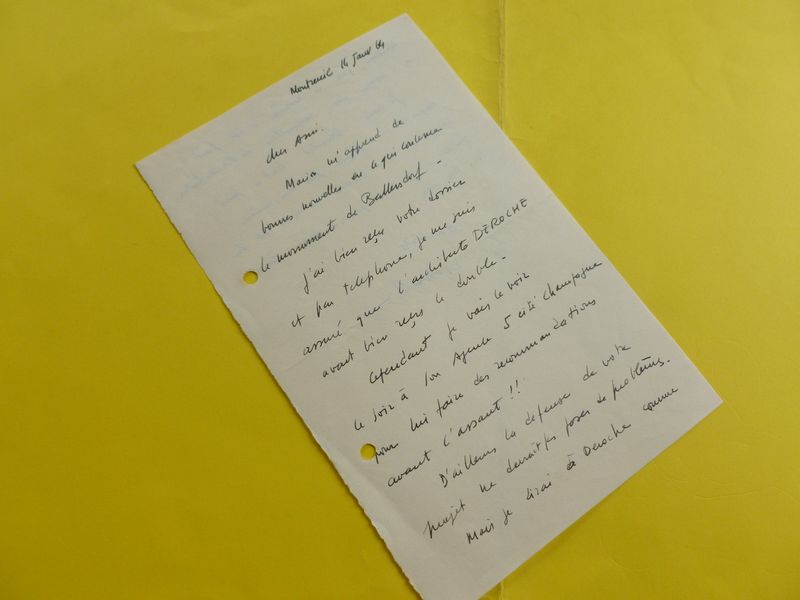 Montreuil 14 Janv 64
cher Ami.
Marion m'apprend de
bonnes nouvelles en ce qui concerne
le monument de Ballersdorf -
J'ai bien reçu votre dossier
et par telephone, je me suis
assuré que l'architecte DEROCHE
avait bien reçu le double.
cependant je vais le voir
ce soir à son Agence 5 cité Champagne
pour lui faire des recommandations
avant l'assaut !!
D'ailleurs la defense de votre
projet ne devrait pas poser de problèms.
Mais je dirai à Deroche comme